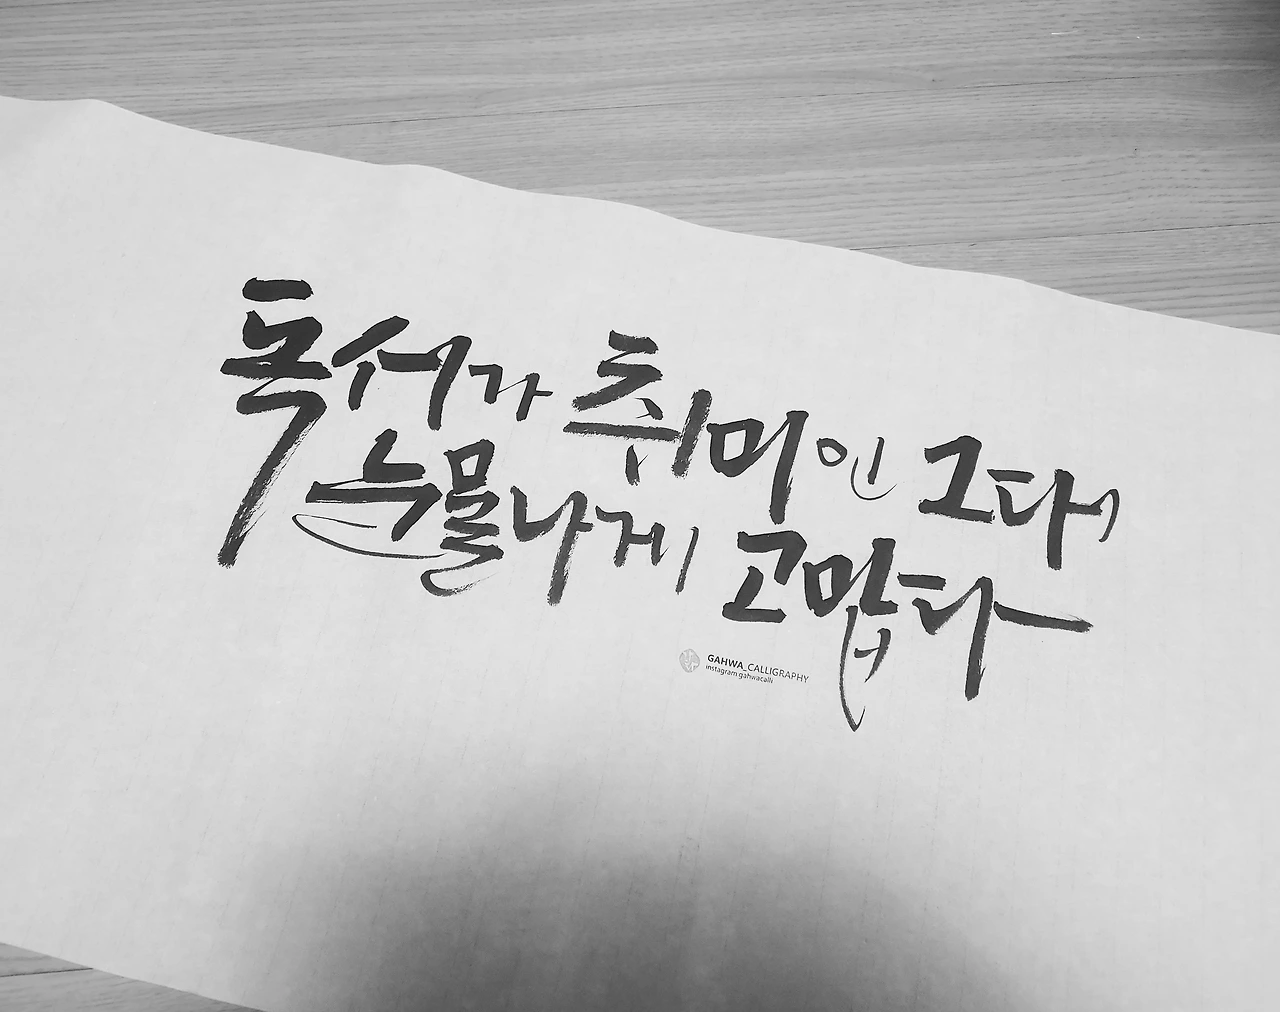 독서가 취미인 그대,
눈물나게 고맙다
GAHWA_CALLIGRAPHY
instagram:gahwacalli